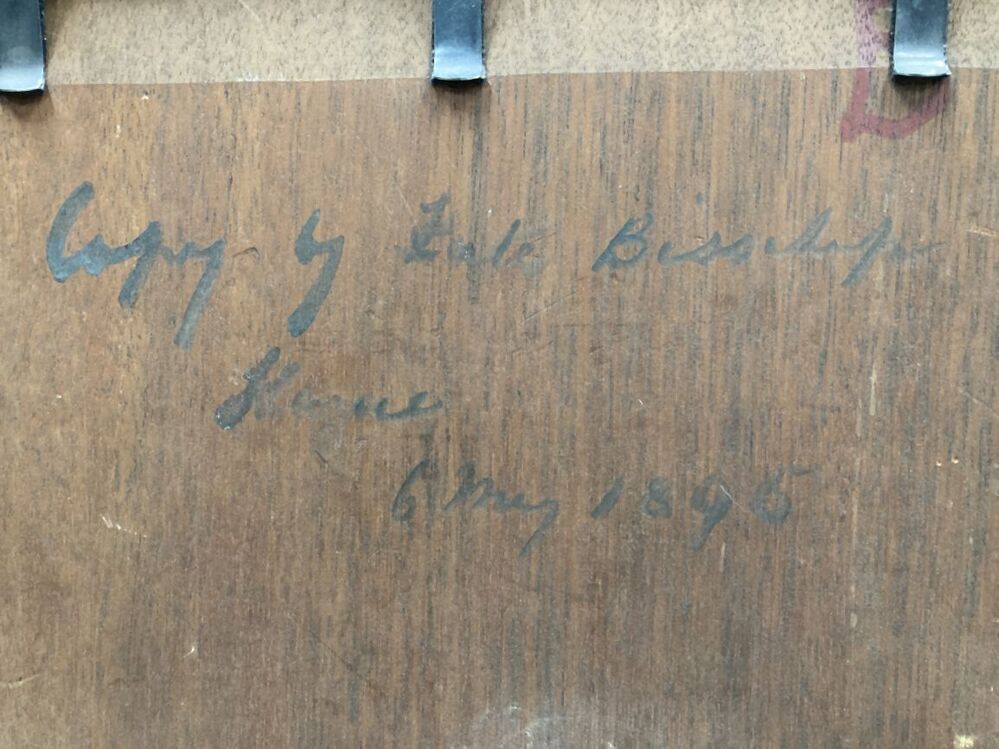 Copy by Kate Bisschop
Hague
6 May 1895